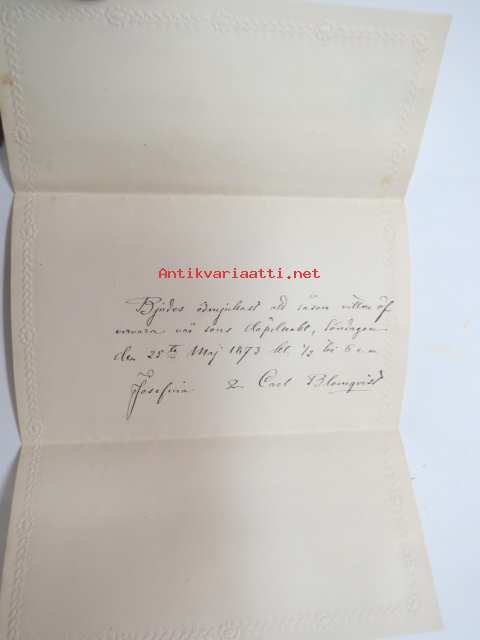 Antikvariaatti.net
Bjudes ödmjukast att såsom vittne öf
vervara vår sons dåpsakt, Söndagen
den 25 te Maj 1873 kl. ½ till 6 e.m
Josefina & Carl Blomqvist